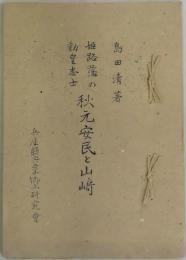 島田清著
姫路藩の
勤皇志士
秋元安民と山﨑
兵庫縣宍粟郷土研究會